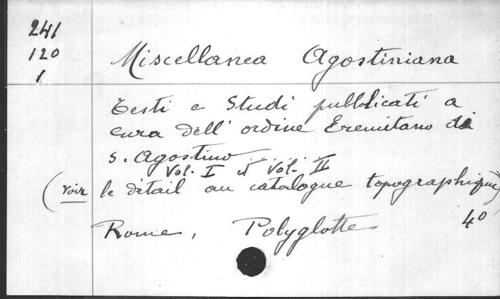 241
120
1
Miscellanea Agostiniana
Testi e Studi pubblicati a
cura dell' ordine Eremitano di
S. Agostino
Vol. I et Vol. II
(voir le détail au catalogue topographique)
Rome, Polyglotte 4°